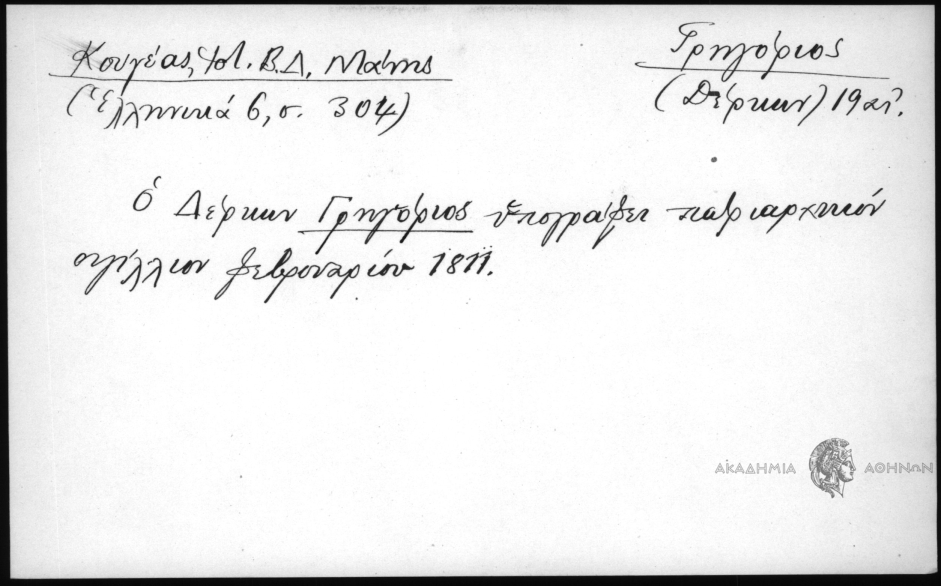 Κουγέας, Ἱστ. Β.Δ. Μάνης
(Ἑλληνικά 6, σ. 304)
Γρηγόριος
(Δέρκων) 19 αἰ.
Ὁ Δέρκων Γρηγόριος ὑπογράφει πατριαρχικόν
σιγίλλιον φεβρουαρίου 1811.
ΑΚΑΔΗΜΙΑ ΑΘΗΝΩΝ